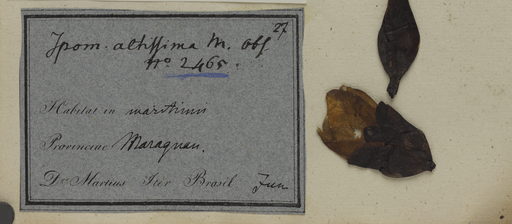 27
Ipom. altissima M. obs
nro 2465.
Habitat in maritimis
Provinciae Maragnan.
Dr. Martius Iter Brasil Jun